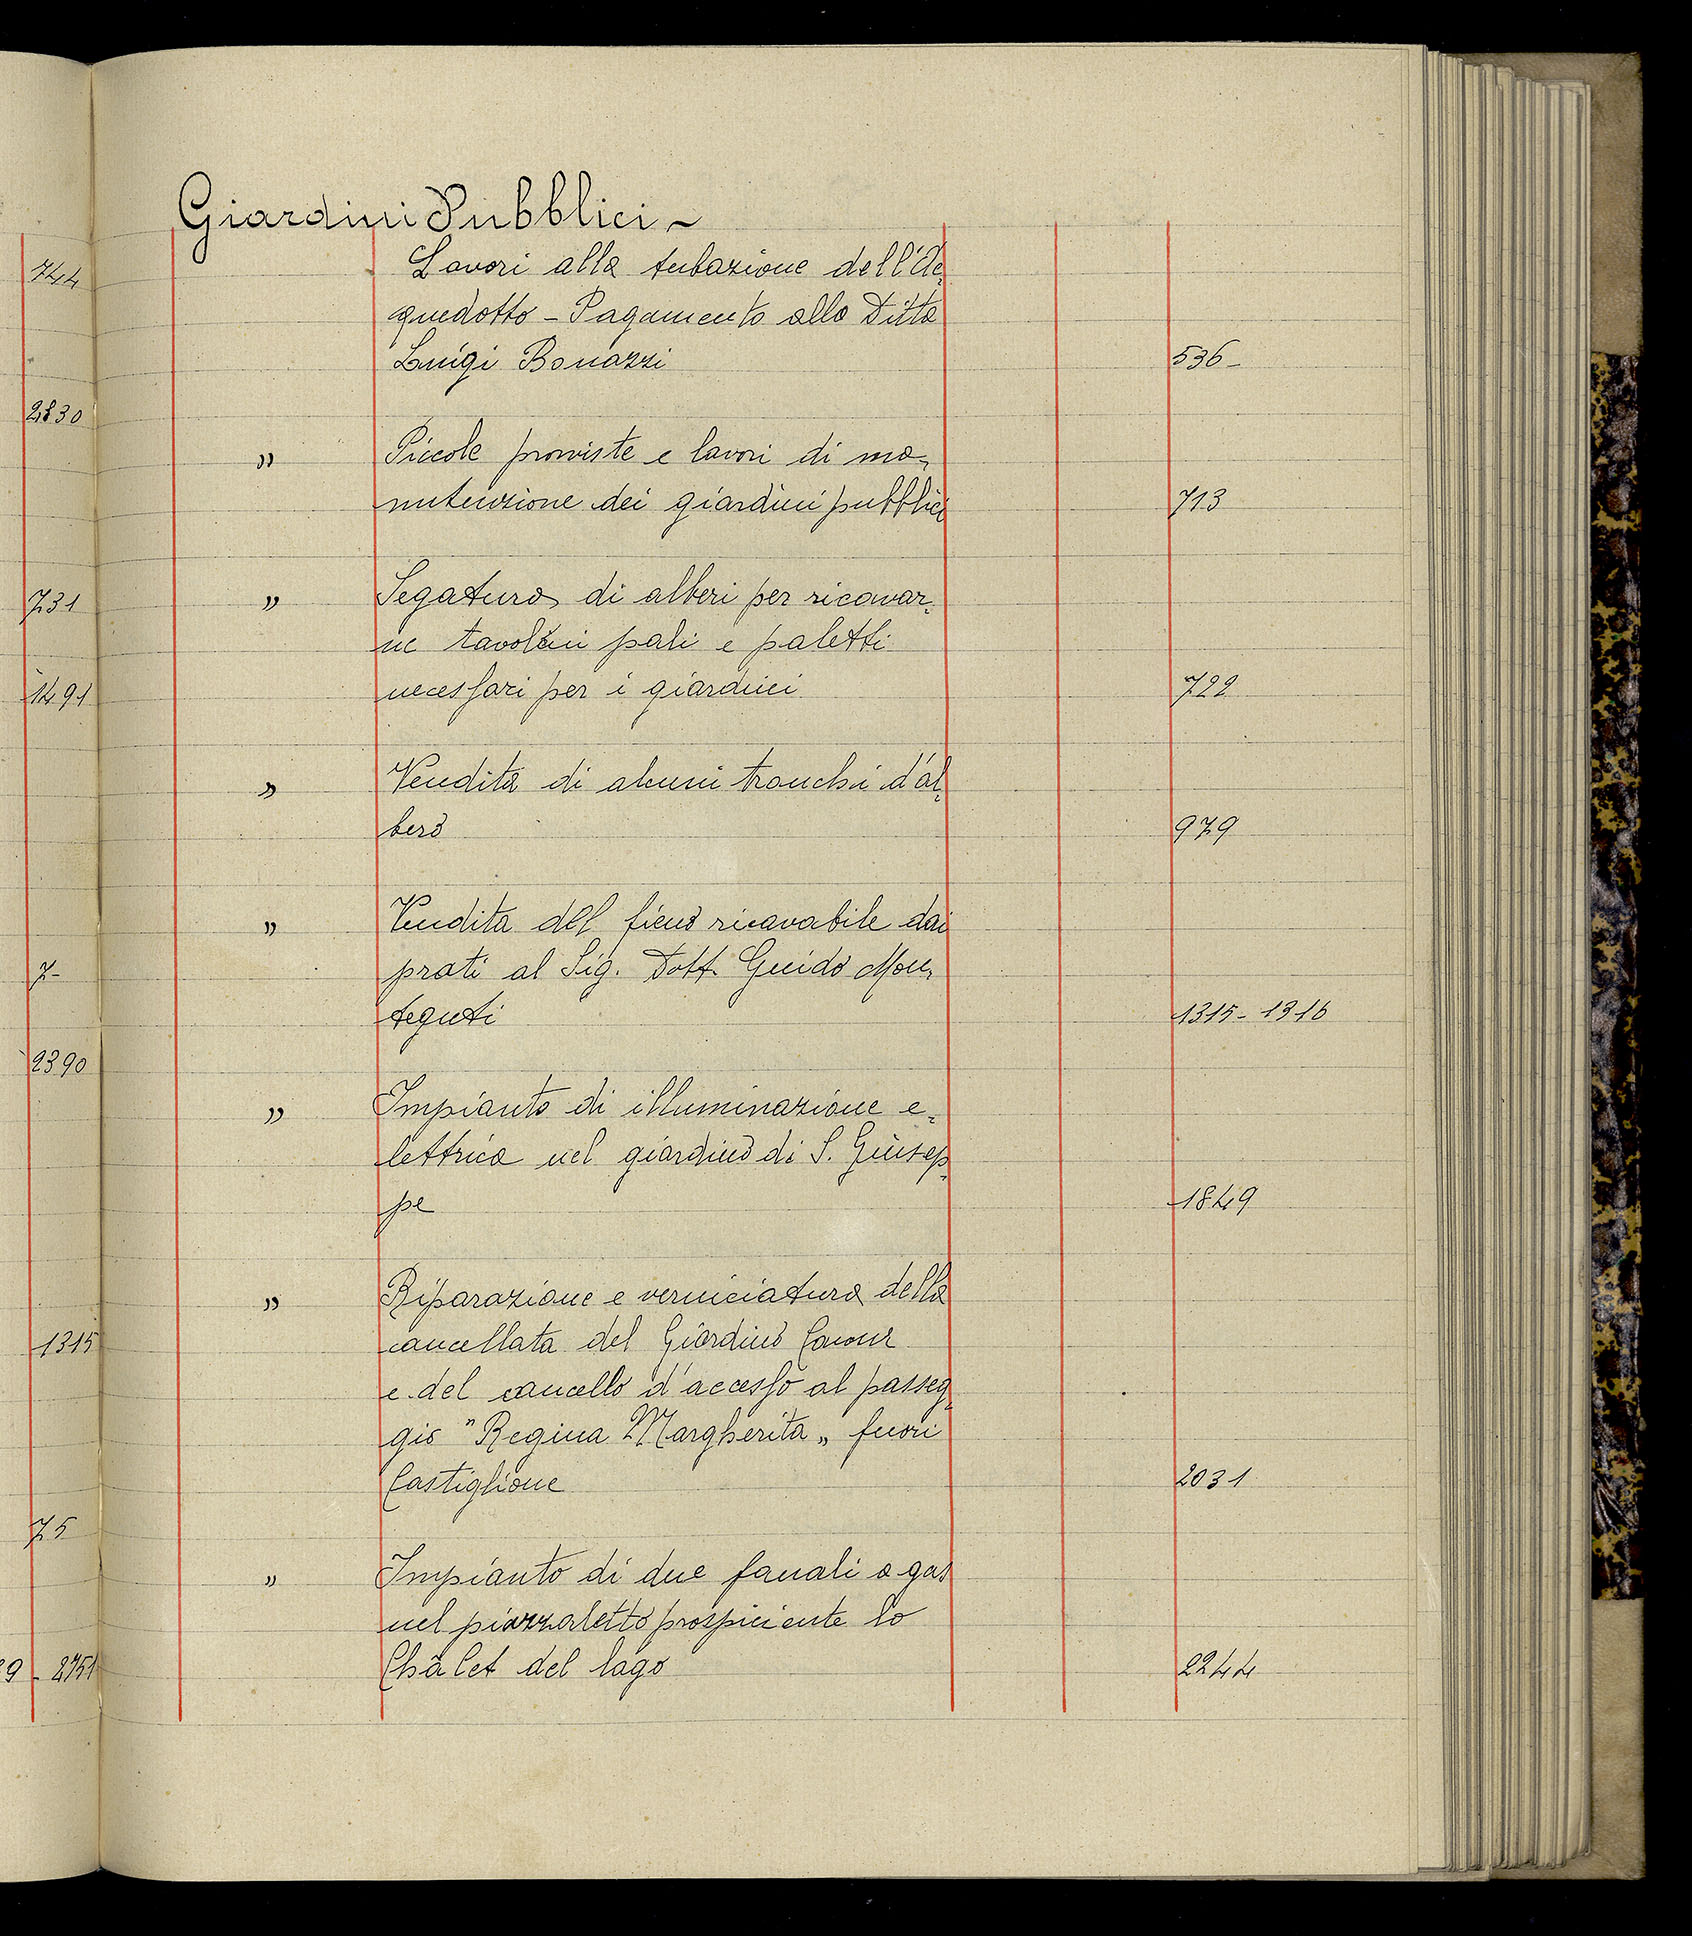 744
2830
731
1491
7-
2390
1315
75
9 - 2751
Giardini Pubblici -
Lavori alla tubazione dell'Ac-
quedotto - Pagamento alla Ditta
Luigi Bonazzi 536-
" Piccole provviste e lavori di ma-
nutenzione dei giardini pubblici 713
" Segatura di alberi per ricavar-
ne tavoloni pali e paletti
necessari per i giardini 722
" Vendita di alcuni tronchi d'al-
bero 979
" Vendita del fieno ricavabile dai
prati al Sig. Dott. Guido Mon-
teguti 1315 - 1316
" Impianto di illuminazione e-
lettrica nel giardino di S. Giusep-
pe 1849
" Riparazione e verniciatura della
cancellata del Giardino Cavour
e del cancello d'accesso al passeg-
gio "Regina Margherita" fuori
Castiglione 2031
" Impianto di due fanali a gas
nel piazzaletto prospiciente lo
Châlet del lago 2244